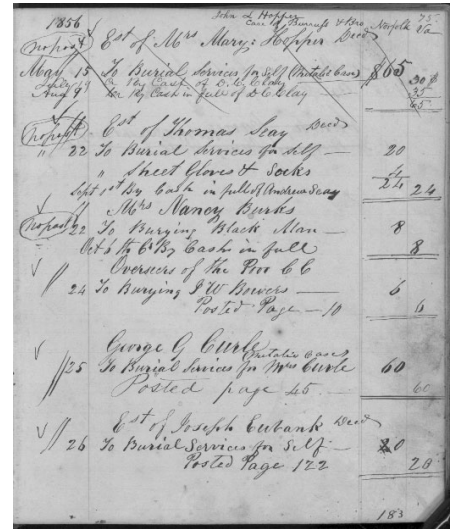 1856 John L Hopper
Care of Burruss & Bro Norfolk Va 75
no post Est of Mrs Mary Hopper Decd
May 15 To Burial Services for Self (Metalic Case) $65
July 19 Cr By Cash of D. C. Clay 30
Aug 9 Cr By Cash in full of D C Clay 35
65
no post Est of Thomas Seay Decd
" 22 To Burial Services for Self — 20
" Sheet Gloves & Socks 4
24
Sept 1st By Cash in full of Andrew Seay 24
Mrs Nancy Burks
no post 22 To Burying Black Man — 8
Oct 6th By Cash in full 8
Overseers of the Poor C C
24 To Burying J W Bowers — 6
Posted Page — 10 6
George G Curle
25 To Burial Services for Mrs Curle (Metalic Case) 60
Posted page 45 60
Est of Joseph Eubank Decd
26 To Burial Services for Self — 20
Posted Page 122 20
183